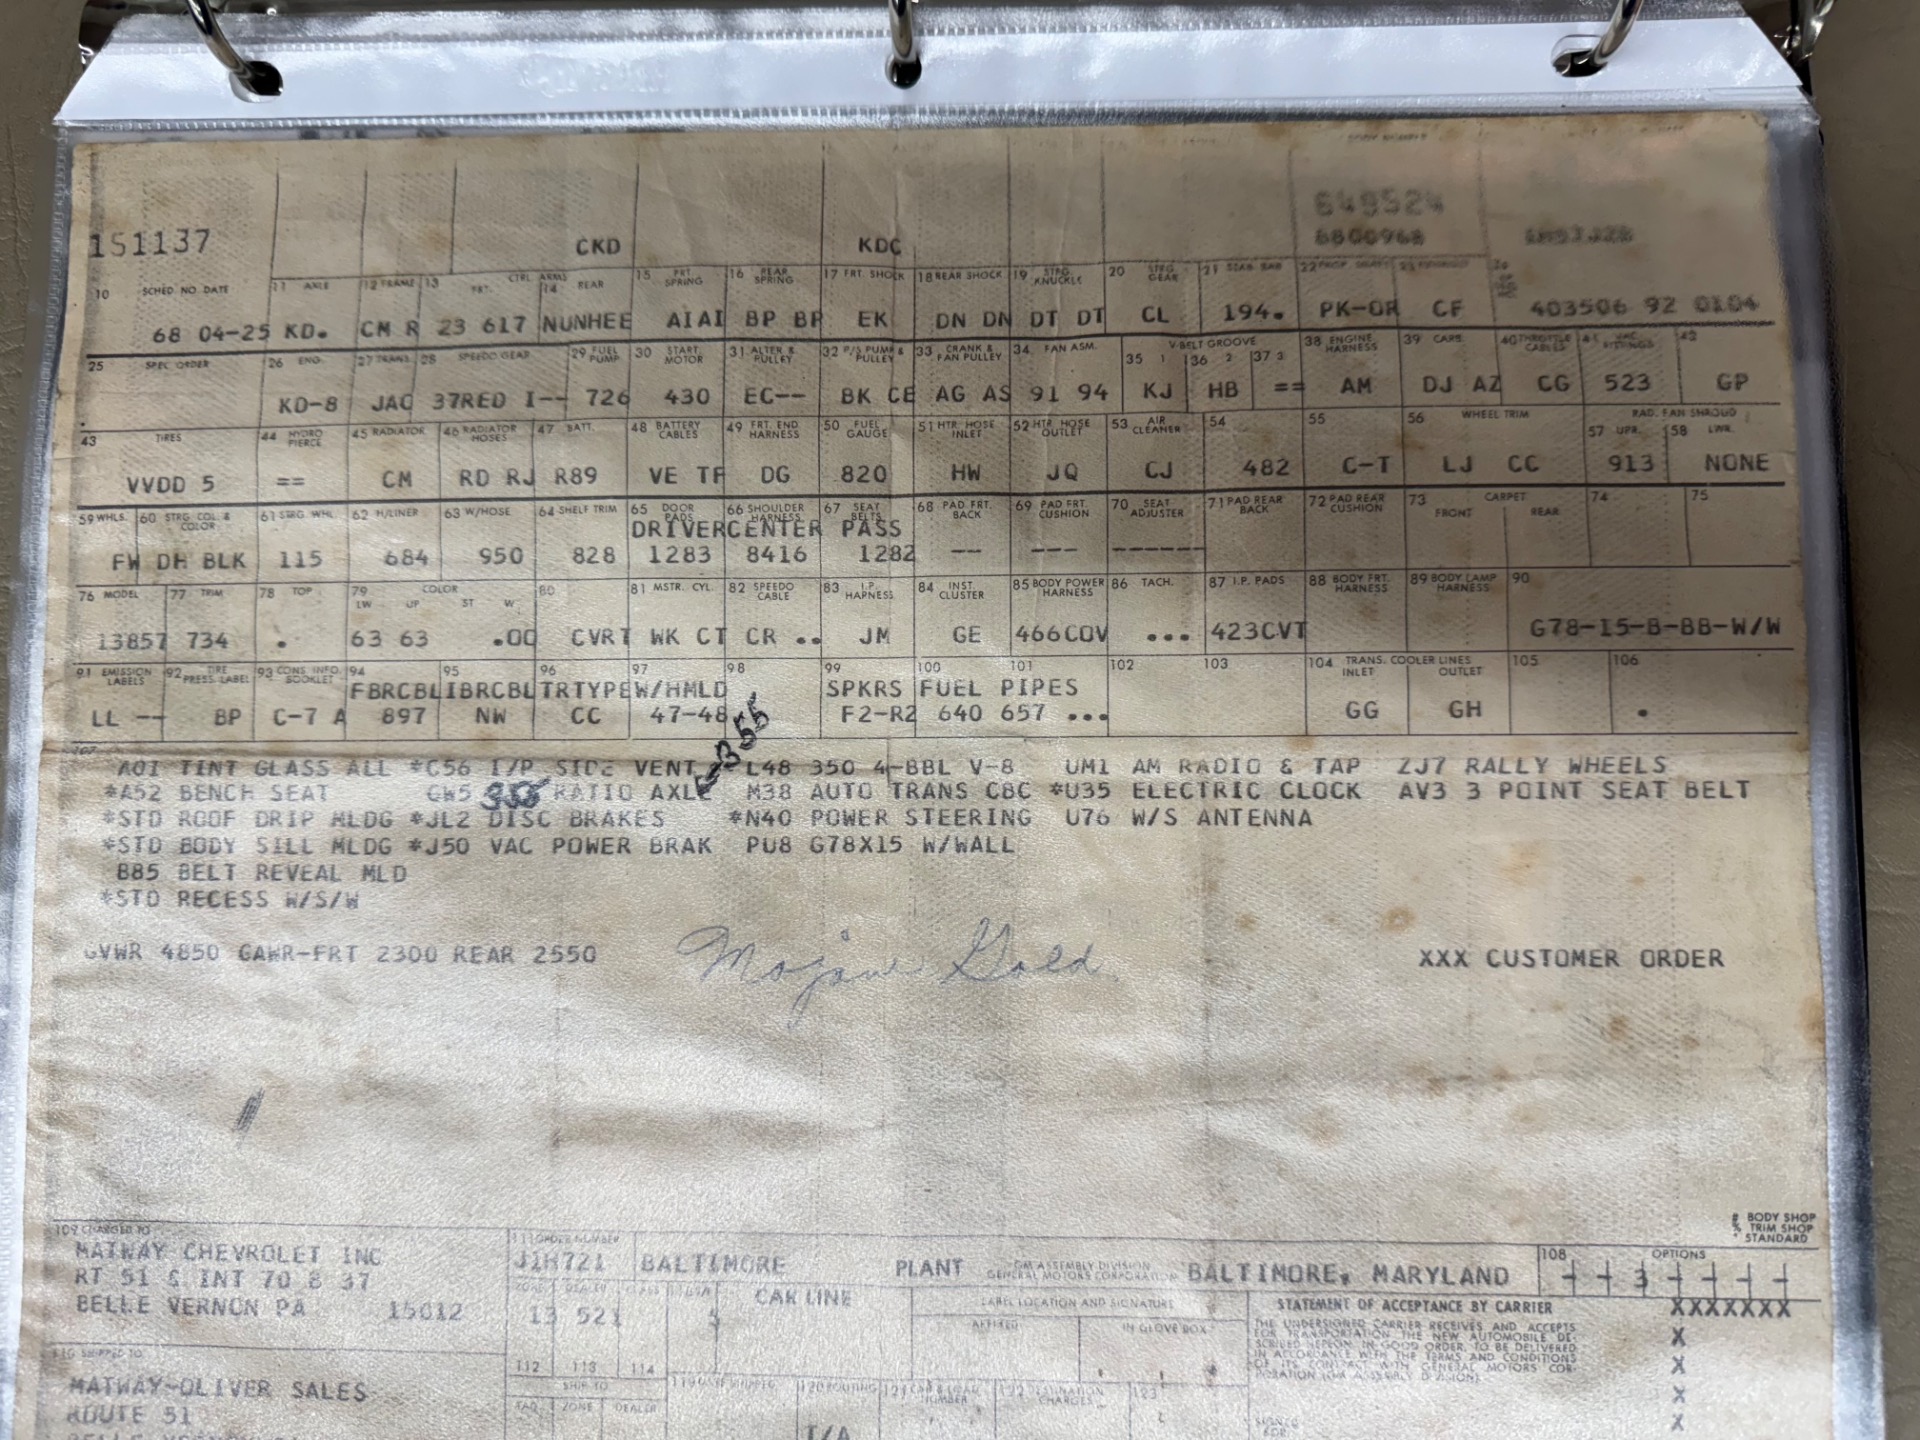 648524
151137 CKD KDC 6800968
10 SCHED NO. DATE 11 AXLE 12 FRAME 13 FRT. CTRL ARMS 14 REAR 15 FRT. SPRING 16 REAR SPRING 17 FRT. SHOCK 18 REAR SHOCK 19 STRG. KNUCKLE 20 STRG. GEAR 21 STAB. BAR
68 04-25 KD. CM R 23 617 NUNHEE AIAI BP BP EK DN DN DT DT CL 194. PK-OR CF 403506 92 0104
25 SPEC. ORDER 26 ENG. 27 TRANS. 28 SPEEDO GEAR 29 FUEL PUMP 30 START. MOTOR 31 ALTER & PULLEY 32 P/S PUMP & PULLEY 33 CRANK & FAN PULLEY 34 FAN ASM. V-BELT GROOVE 35 1 36 2 37 3 38 ENGINE HARNESS 39 CARB. 40 THROTTLE CABLES 42
KD-8 JAC 37RED I-- 726 430 EC-- BK CE AG AS 91 94 KJ HB == AM DJ AZ CG 523 GP
43 TIRES 44 HYDRO PIERCE 45 RADIATOR 46 RADIATOR HOSES 47 BATT. 48 BATTERY CABLES 49 FRT. END HARNESS 50 FUEL GAUGE 51 HTR. HOSE INLET 52 HTR. HOSE OUTLET 53 AIR CLEANER 54 55 56 WHEEL TRIM RAD. FAN SHROUD 57 UPR. 58 LWR.
VVDD 5 == CM RD RJ R89 VE TF DG 820 HW JQ CJ 482 C-T LJ CC 913 NONE
59 WHLS. 60 STRG. COL. & COLOR 61 STRG. WHL. 62 H/LINER 63 W/HOSE 64 SHELF TRIM 65 DOOR PADS 66 SHOULDER HARNESS 67 SEAT BELTS 68 PAD FRT. BACK 69 PAD FRT. CUSHION 70 SEAT ADJUSTER 71 PAD REAR BACK 72 PAD REAR CUSHION 73 CARPET FRONT REAR 74 75
DRIVERCENTER PASS
FW DH BLK 115 684 950 828 1283 8416 1282 -- --- ------
76 MODEL 77 TRIM 78 TOP 79 COLOR LW UP ST W 80 81 MSTR. CYL. 82 SPEEDO CABLE 83 I.P. HARNESS 84 INST. CLUSTER 85 BODY POWER HARNESS 86 TACH. 87 I.P. PADS 88 BODY FRT. HARNESS 89 BODY LAMP HARNESS 90
13857 734 . 63 63 .00 CVRT WK CT CR .. JM GE 466COV ... 423CVT G78-15-B-BB-W/W
91 EMISSION LABELS 92 TIRE PRESS. LABEL 93 CONS. INFO. BOOKLET 94 95 96 97 98 99 100 101 102 103 104 TRANS. COOLER LINES INLET OUTLET 105 106
FBRCBL IBRCBL TRTYPE W/HMLD SPKRS FUEL PIPES
LL -- BP C-7 A 897 NW CC 47-48 F2-R2 640 657 ... GG GH .
107 355
A01 TINT GLASS ALL *C56 I/P SIDE VENT L48 350 4-BBL V-8 UM1 AM RADIO & TAP ZJ7 RALLY WHEELS
*A52 BENCH SEAT GW5 355 RATIO AXLE M38 AUTO TRANS CBC *U35 ELECTRIC CLOCK AV3 3 POINT SEAT BELT
*STD ROOF DRIP MLDG *JL2 DISC BRAKES *N40 POWER STEERING U76 W/S ANTENNA
*STD BODY SILL MLDG *J50 VAC POWER BRAK PU8 G78X15 W/WALL
B85 BELT REVEAL MLD
*STD RECESS W/S/W
GVWR 4850 GAWR-FRT 2300 REAR 2550 Mojave Gold XXX CUSTOMER ORDER
BODY SHOP
TRIM SHOP
STANDARD
109 CHARGED TO 111 ORDER NUMBER
MATWAY CHEVROLET INC J1H721 BALTIMORE PLANT GM ASSEMBLY DIVISION GENERAL MOTORS CORPORATION BALTIMORE, MARYLAND 108 OPTIONS
RT 51 & INT 70 B 37 3
BELLE VERNON PA 15012 13 521 CAR LINE LABEL LOCATION AND SIGNATURE STATEMENT OF ACCEPTANCE BY CARRIER XXXXXXX
AFFIXED IN GLOVE BOX
THE UNDERSIGNED CARRIER RECEIVES AND ACCEPTS
FOR TRANSPORTATION THE NEW AUTOMOBILE DE-
SCRIBED HEREON, IN GOOD ORDER, TO BE DELIVERED
IN ACCORDANCE WITH THE TERMS AND CONDITIONS
OF ITS CONTRACT WITH GENERAL MOTORS COR-
PORATION (GM ASSEMBLY DIVISION).
X
X
X
X
110 SHIPPED TO 112 113 114
MATWAY-OLIVER SALES SHIP TO 120 ROUTING 122 DESTINATION CHARGES 123
ROUTE 51 FAC. ZONE DEALER SIGNED FOR
T/A